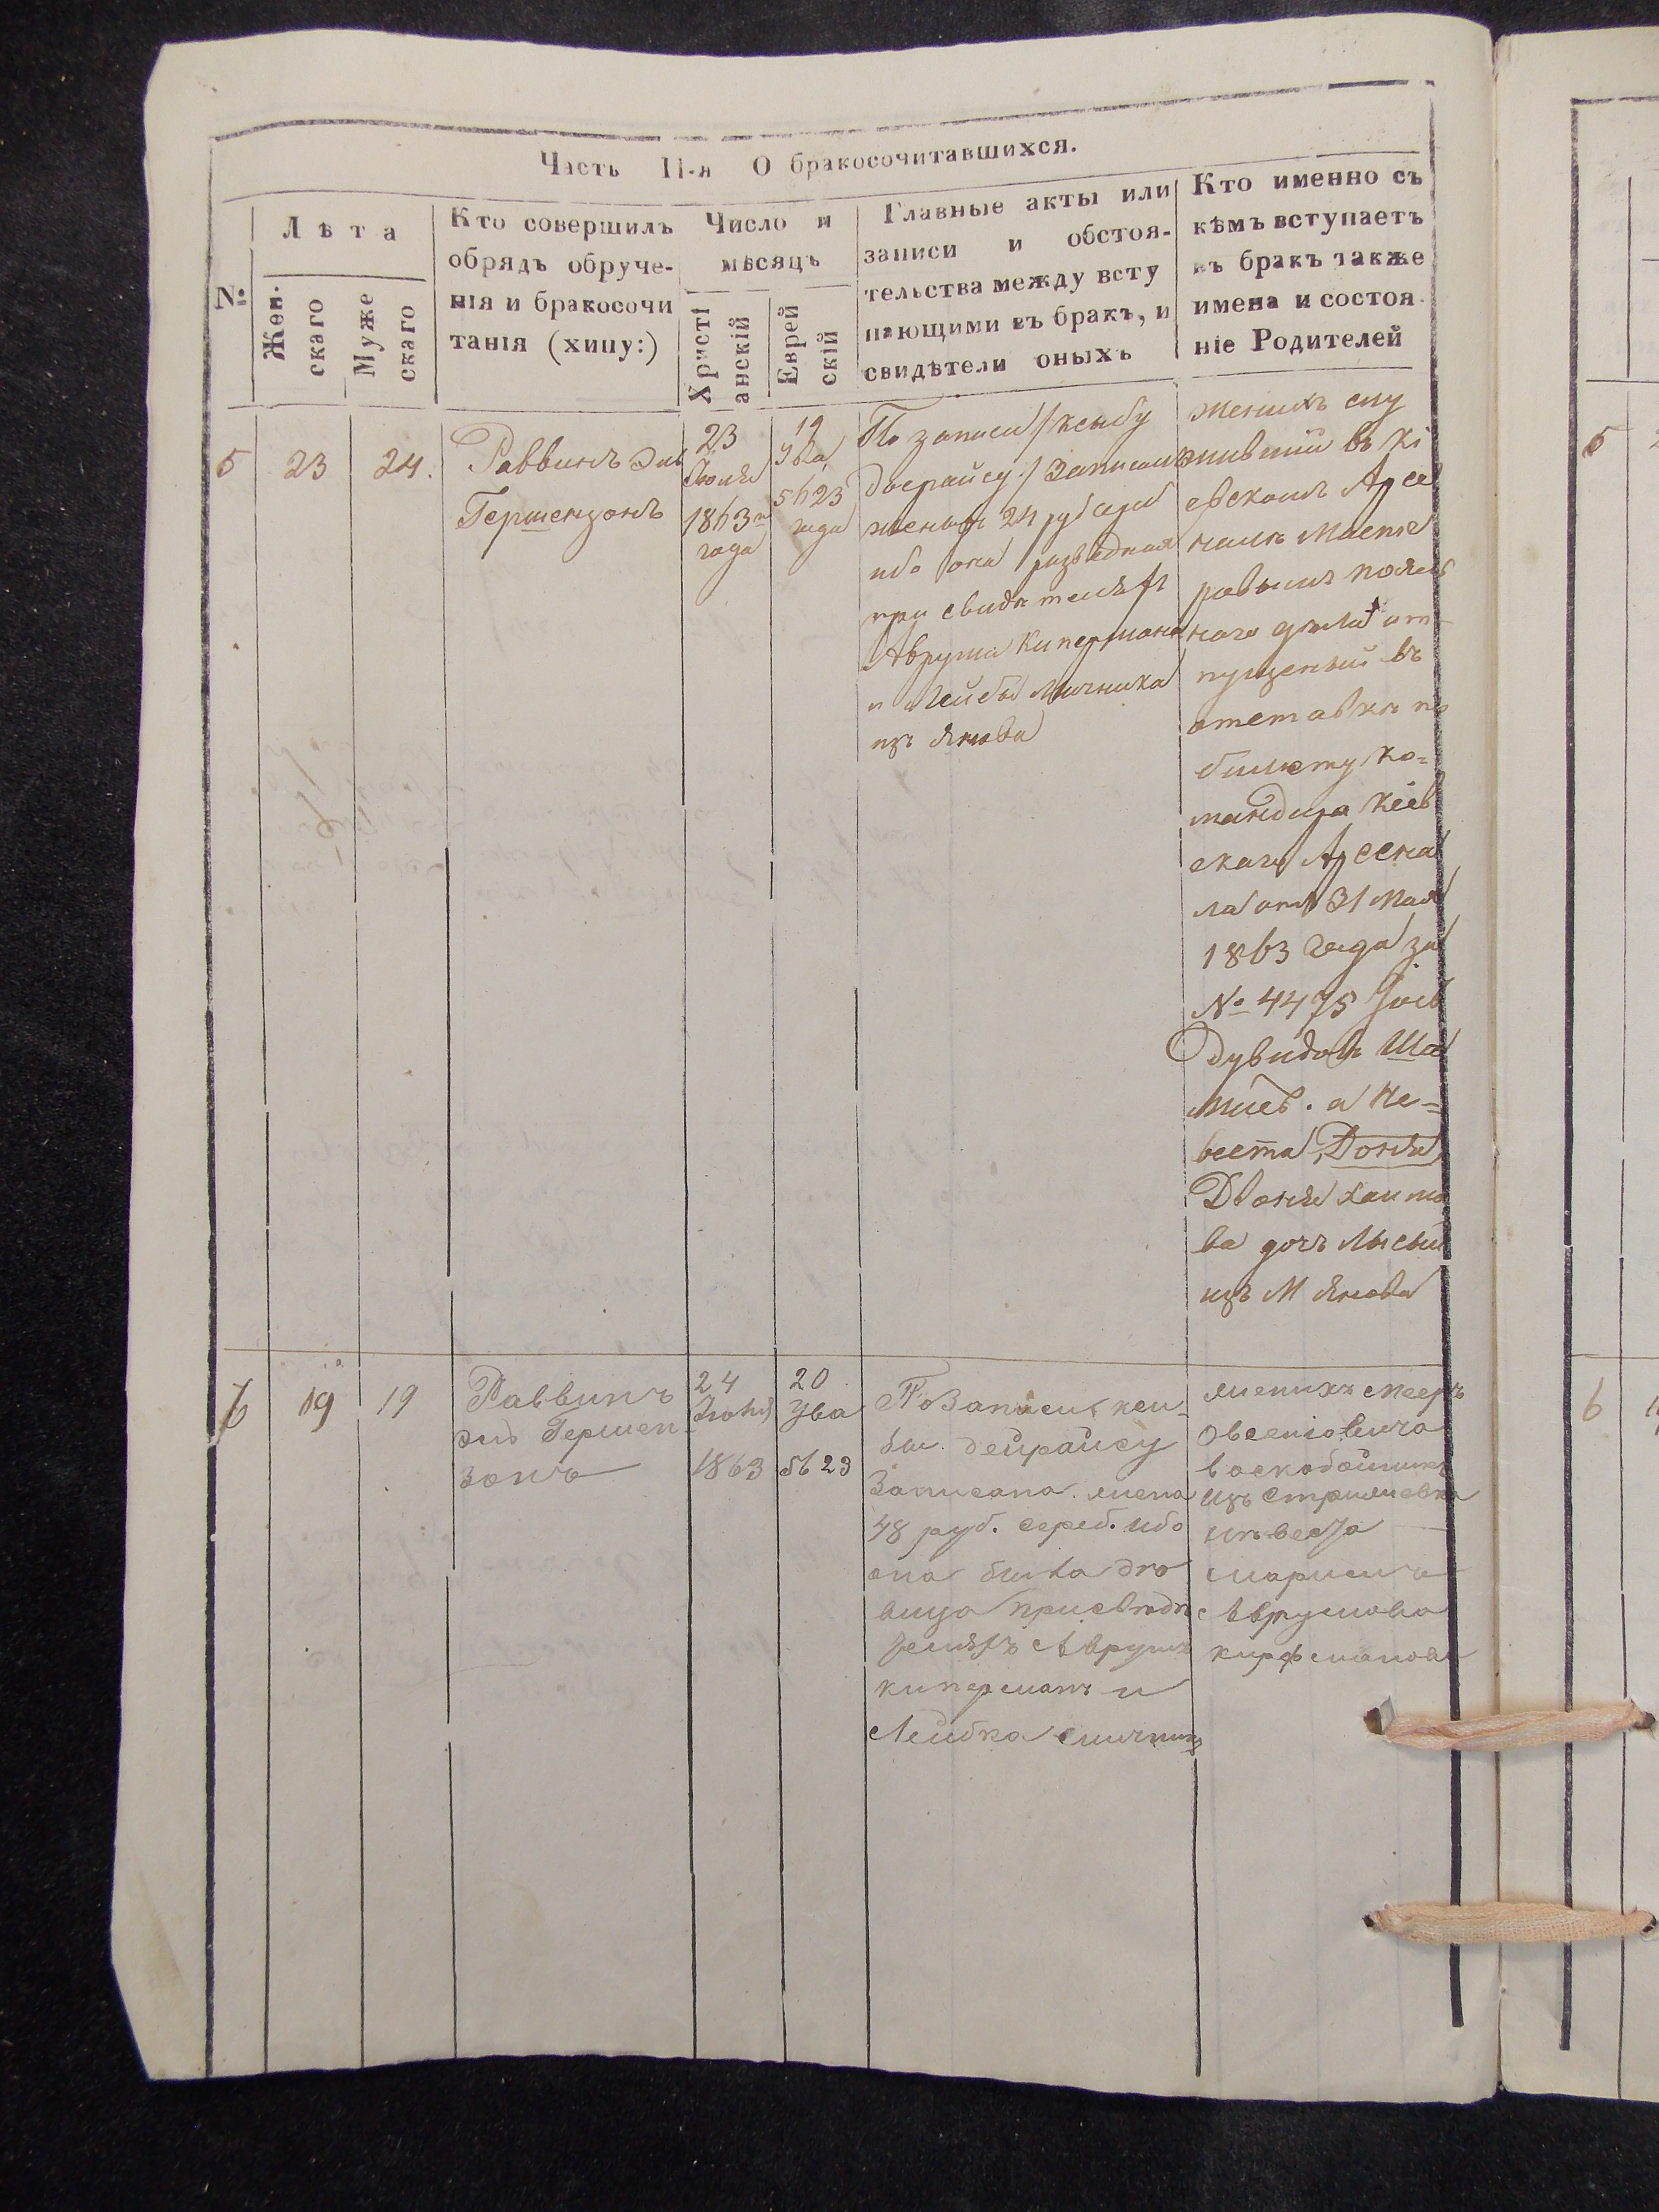 Часть II-я О бракосочитавшихся.
№
Лѣта
Жен.
скаго
Муже
скаго
Кто совершилъ
обрядъ обруче-
нія и бракосочи
танія (хипу:)
Число и
мѣсяцъ
Христі
анскій
Еврей
скій
Главные акты или
записи и обстоя-
тельства между всту
пающими въ бракъ, и
свидѣтели оныхъ
Кто именно съ
кѣмъ вступаетъ
въ бракъ также
имена и состоя
ніе Родителей
5
23
24.
Раввинъ Эль
Гершензонъ
23
Іюля
1863
года
19
Ува
5623
года
По записи /ксыбу
дѣерайсу:/ Записано
женѣ 24 руб сереб
ибо она разведная
при свидѣтеляхъ
Аврума Кипермана
и Лейбы Мычника
изъ Янова
Женихъ слу
жившій въ Кі
евскомъ Арсе
налѣ Масте
ровымъ
наго от-
пущенный въ
отставку по
билету ко-
мандира Кіев
скаго Арсена
ла отъ 31 Мая
1863 года за
№ 4475
Дувидовъ Ша
а Не-
веста Доня
Двоня Хаимо
ва дочъ
изъ М Янова
6
19
19
Раввинъ
Эль Гершен
зонъ
24
Іюля
1863
20
Ува
5623
По Записи ксы-
бы. дейрайсу
Записано жена
48 руб. сереб. ибо
она была дѣ
вица при свидѣ
теляхъ Аврумъ
киперманъ и
Лейбка
женихъ мееръ
Овсеіовичъ
воскобойникъ
изъ Стрижевка
невеста
мариемъ
Аврумова